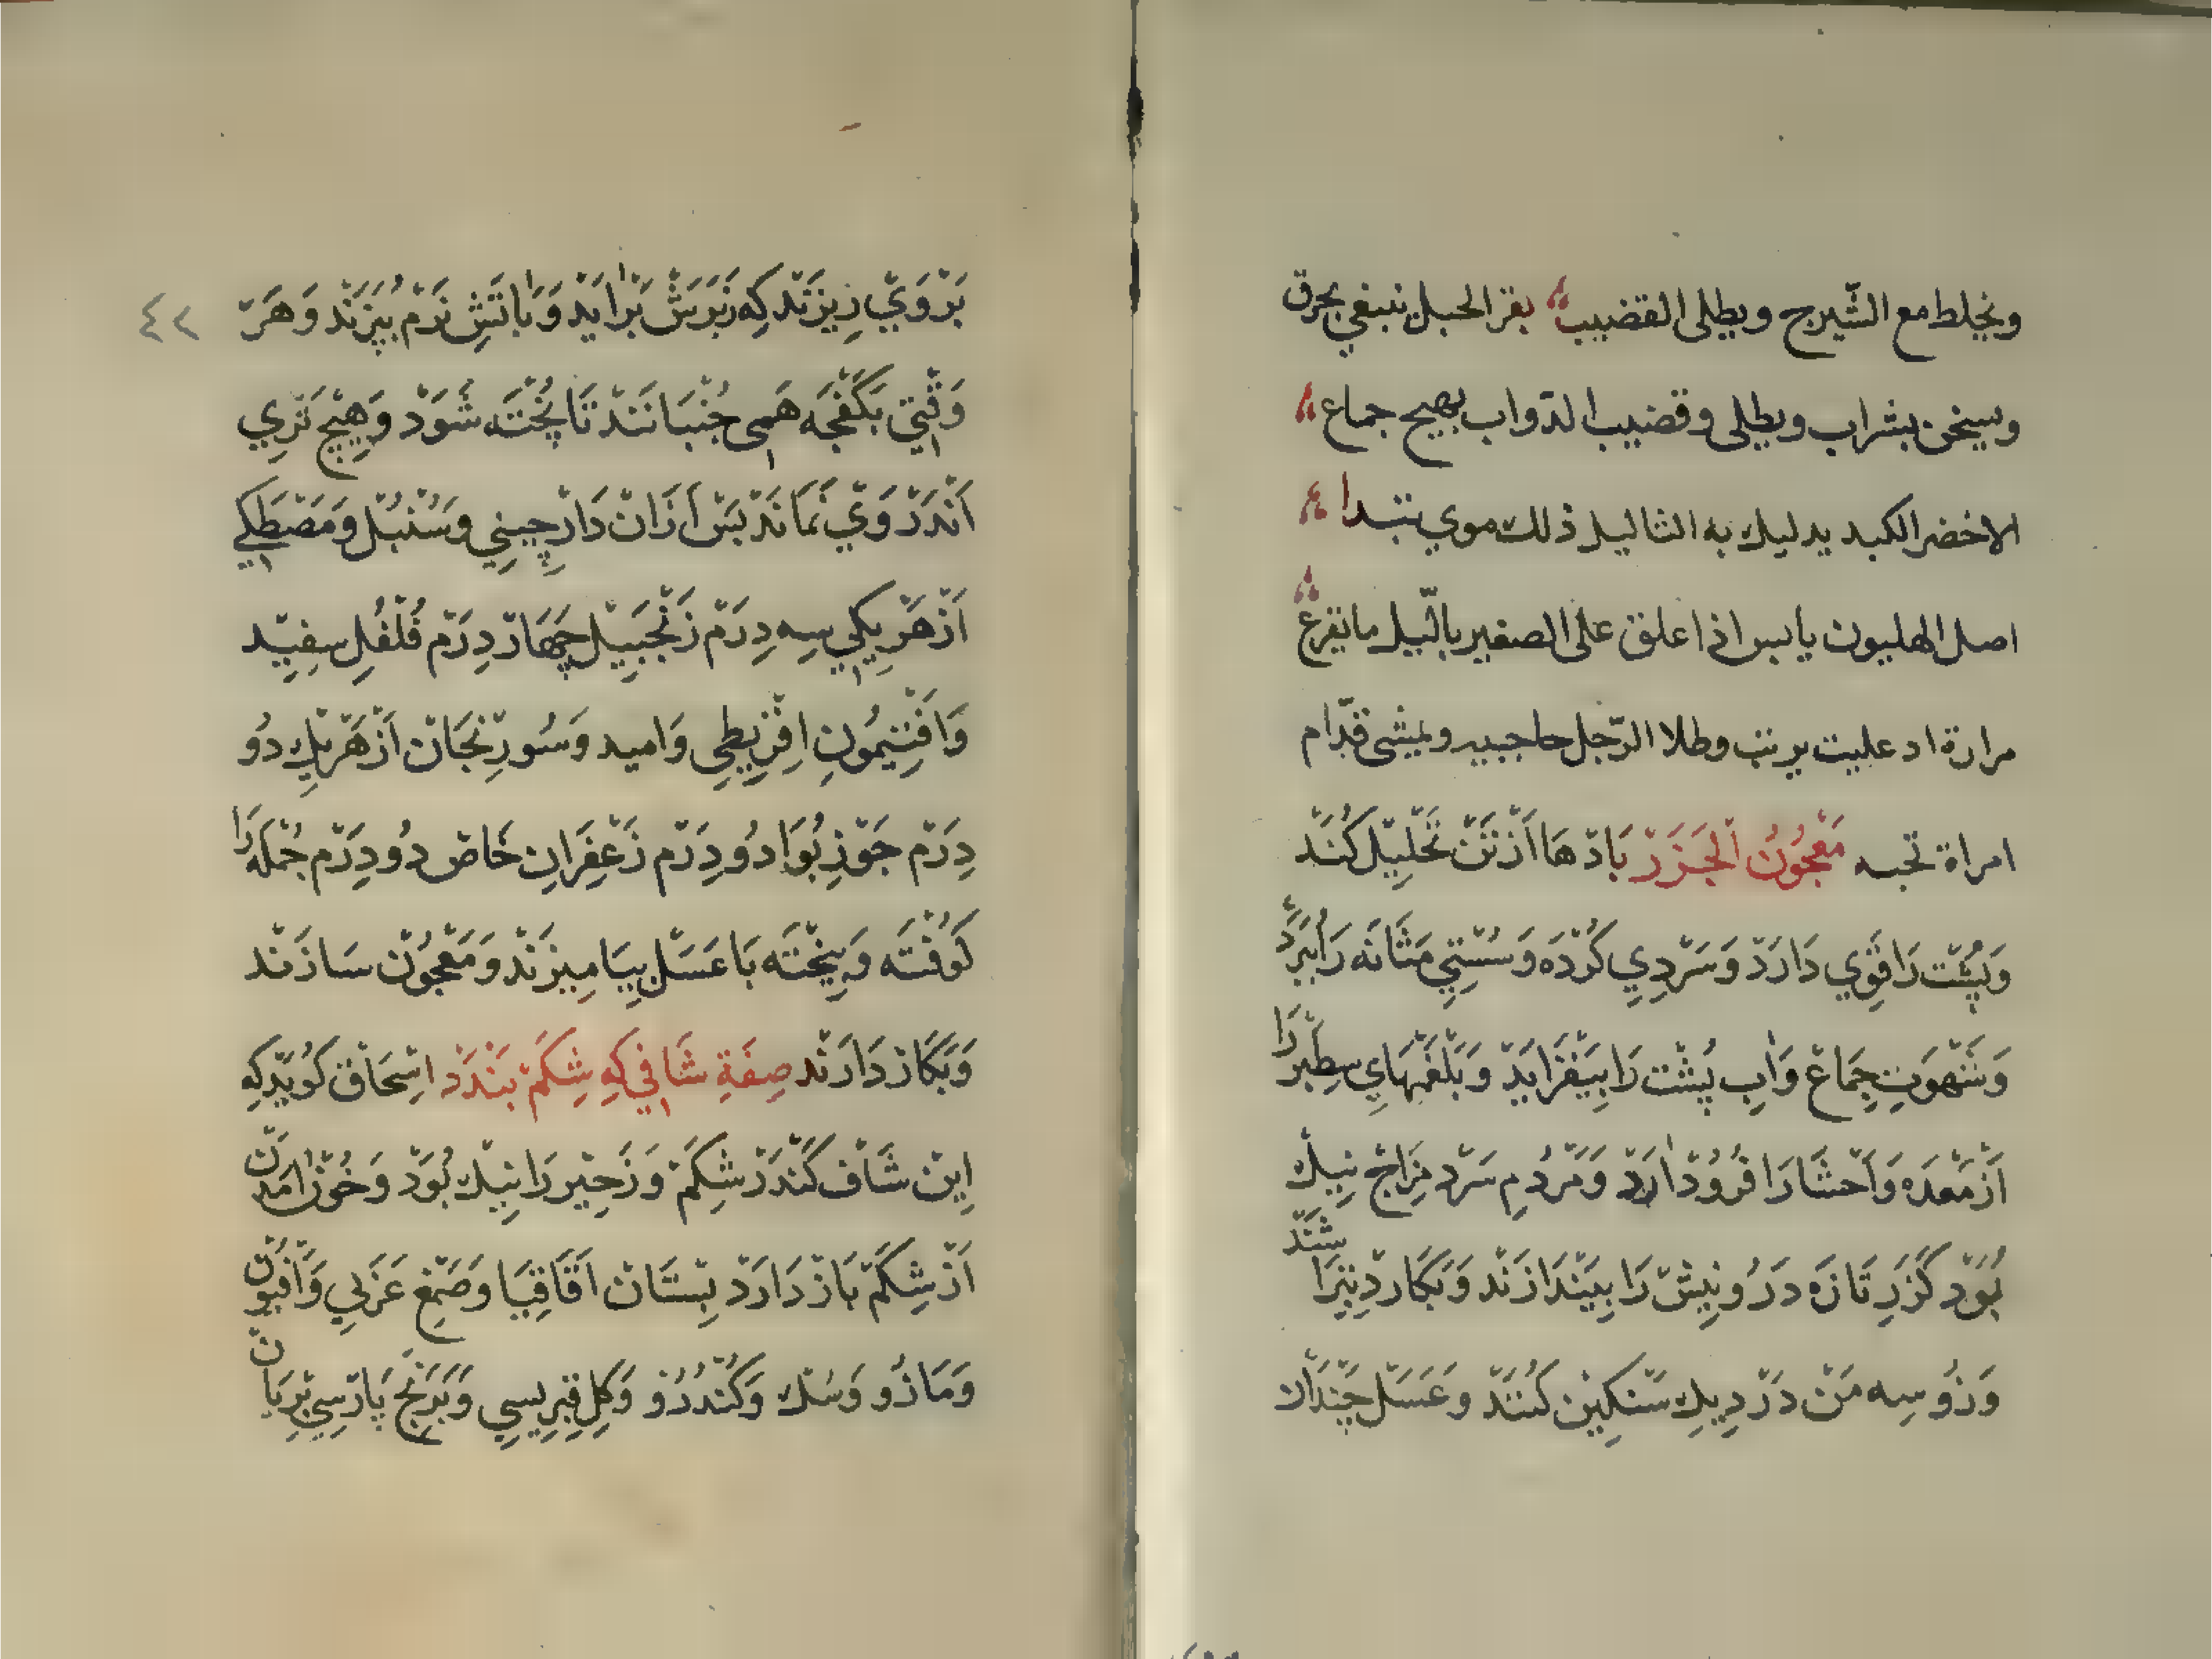 ويخلط مع الشّيرج ويطلى القضيب بقر الحبل ينبغي يحرق
ويسخن بشراب ويطلى وقضيب الدّواب يهيج جماع
الاخضر الكبد يدليك به الثاليل ذلك موي
اصل الهليون يابس اذا علق على الصغير بالّيل ما يفزع
مرارة وطلا الرّجل حاجبيه ويمشى قدّام
امراة تحبه مَعْجُونُ الْجَزَرْ بَادْهَا اَزْتَنْ تَحْلِيْلْ كُنَدْ
وَپُشْت رَا قَوِي دَارَدْ وَسَرْدِيِ كُرْدَه وَسُسْتِيِ مَثَانَه رَا بَبَرَدْ
وَشَهْوَتِ جِمَاعْ وَابِ پُشْت رَا بِيَفْزَايَدْ وَبَلْغَمْهَايِ سِطَبْر رَا
اَزْ مَعْدَه وَاَحْشَا رَا فُرُوْدْ اٰرَدْ وَمَرْدُمِ سَرْد مِزَاجْ نِيكْ
بُوَدْ گَزَرِ تَازَه دَرُونِيَشْ رَا بِيَنْدَازَنْد وَبَكَارد تِيزَا شَنَدْ
وَزُو سِه مَنْ دَرْ دِيكِ سَنْكِيْن كُنَنْد وَعَسَلْ چَنْدَان
بَرْوَيْ رِيزَنْد كِه زَبَرَشْ بَرْاٰيَدْ وَبَاٰتَشِ نَرْم بِپَزَنْد وَهَرْ
وَقْتِي بَكَفْجَه هَمِي جُنْبَانَنْد تَا پُخْتَه شَوَدْ وَهِيْچْ تَرِي
اَنْدَرْ وَيْ نَمَانَدْ پَسْ اَزَانْ دَارْچِينِي وَسُنْبُلْ وَمَصْطَكِي
اَزْ هَرْ يِكِي سِه دِرَمْ زَنْجَبِيْل چَهَارْ دِرَمْ فُلْفُلِ سِفِيْد
وَافْتِيْمُونِ اقْرِيْطِي وَاميد وَسُورِنْجَانْ اَزْ هَرْيَكِ دُو
دِرَمْ جَوْزِ بُوَا دُو دِرَم زَعْفِرَانِ خَاصْ دُو دِرَمْ جُمْلَه رَا
كُوفْتَه وَبِيخْتَه بَا عَسَلْ بِيَامِيزَنْد وَمَعْجُونْ سَازَنْد
وَبَكَارْ دَارَنْد صِفَةِ شَافِي كِه شِكَمْ بِبَنْدَدْ اِسْحَاقْ كُويَدْ كِه
اِيْنْ شَافْ كَنْدَرْ شِكَمْ وَزَحِيْر رَا نِيكْ بُوَدْ وَخُوْنْ اٰمَدَنْ
اَزْ شِكَمْ بَازْ دَارَدْ بِسْتَانْ اَقَاقِيَا وَصَمْغِ عَرَبِي وَاَفْيُونْ
وَمَازُو وَسُكْ وَكُنْدُرُو وَكِلِ قِبْرِيسِي وَبَرَنْجِ پَارْسِيِ بِرِيَانْ